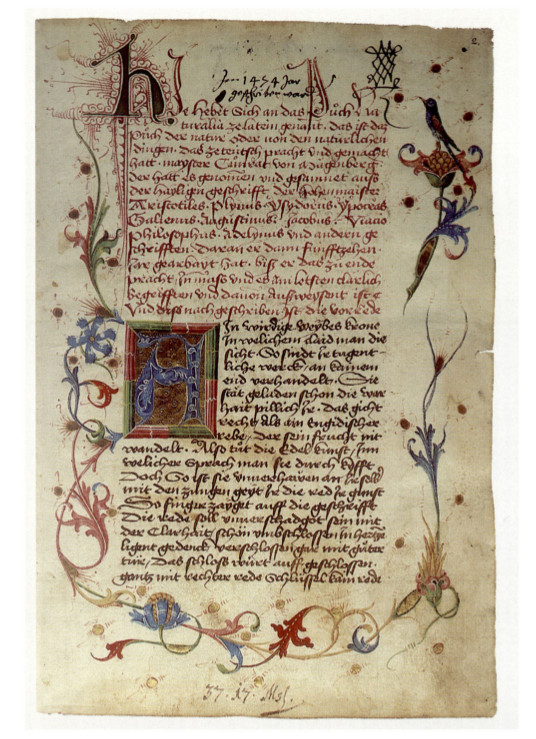 Im 1474 Jar
geschriben ward
2.
HIe hebet Sich an das Půch Na
turalia ze latein genant. das ist daz
Půch der nature oder von den natürlichen
dingen. das ze teütsch pracht vnd gemacht
hatt. mayster Cůnrat von augenberg.
der hatt es genomen vnd gesamnet auss
der hayligen geschrifft. der hohen maister
Aristotiles. Plynius. ysydorus. ypocras
Gallenus. Augustinus. Jacobus.
Philosophus. Adelynus vnd andern ge
schrifften. Daran er dann fünffzehen
Jar gearbayt hat. biss er das zů ende
pracht. In mass vnd es am letsten clärlich
begriffen vnd dauon aussweysent ist
Vnd diss nach geschriben ist die vorrede
AIn wirdige weybes krone
In welichem claid man die
sicht. So sindt Ir tugent-
liche werck. an kainem
end verhandelt. Sie
stät geladen schon die war
hait pillich Ir. Das gicht
recht. Als ain Engidischer
rebe. Der sein frucht nit
wandelt. Also tůt die Edel kunst. Inn
welicher Sprach man sie durch kyfft
Doch So ist sie vnuerhawen an Ir selb
mit den zungen geyt Ir die red Ir gunst
So finger zayget auff die geschrifft
Die rede soll vnuerschadgot sein mit
der Clarhait schon vmbschlossen In hertze
ligent gedenck verschlossen gar mit gůter
türe. Das schloss würt auff geschlossen.
gantz mit rechter rede Schlüssel kain rede
37. 17. Msc.